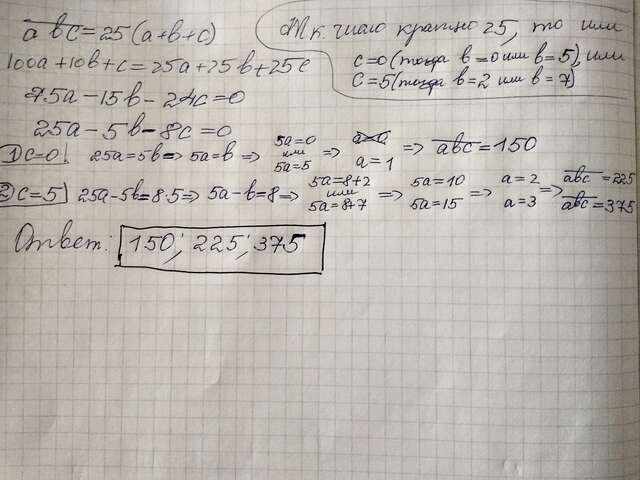 abc = 25(a+b+c)
100a+10b+c=25a+25b+25c
75a-15b-24c=0
25a-5b-8c=0
Т.к. число кратно 25, то или
c=0 (тогда b=0 или b=5), или
c=5 (тогда b=2 или b=7)
1) c=0 25a=5b => 5a=b => 5a=0 или 5a=5 => a=0 a=1 => abc=150
2) c=5 25a-5b=8·5 => 5a-b=8 => 5a=8+2 или 5a=8+7 => 5a=10 5a=15 => a=2 a=3 => abc=225 abc=375
Ответ: 150; 225; 375